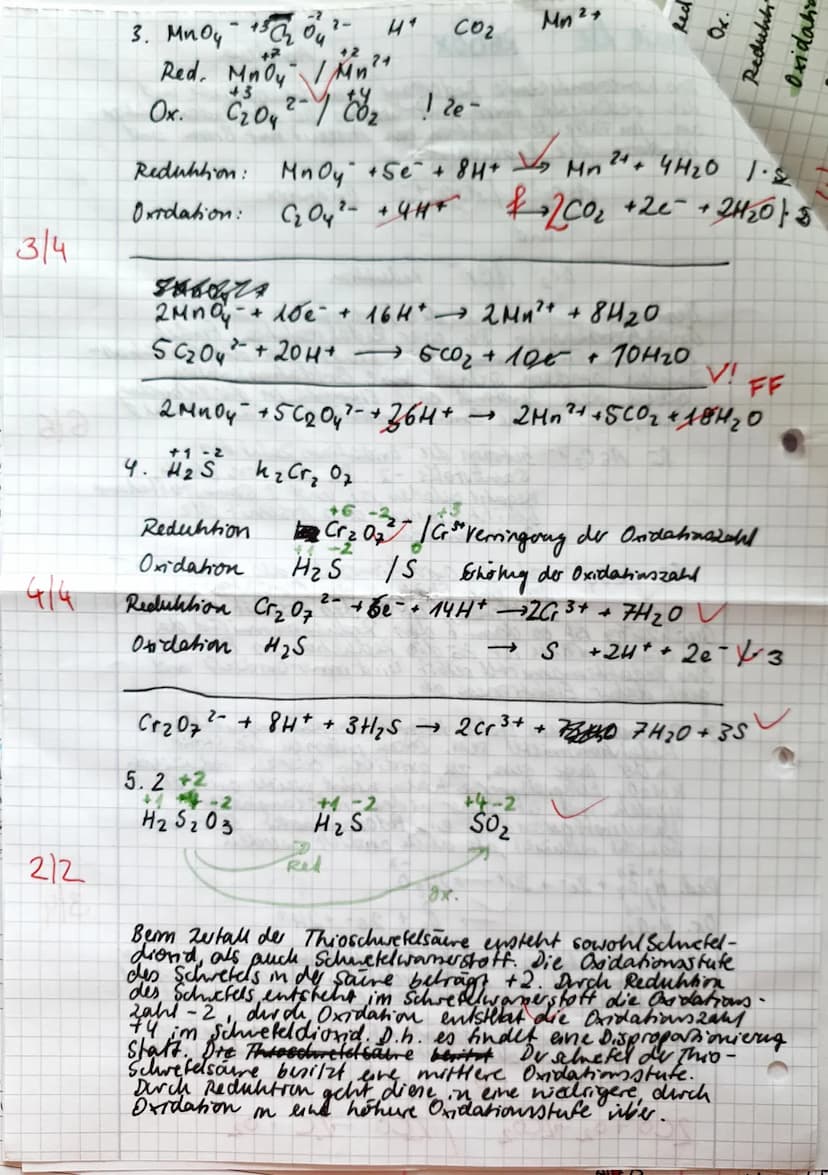 3. MnO4⁻ +3 C2 -2 O4²⁻ H⁺ CO2 Mn²⁺
Red
Ox.
Reduktio
Oxidatio
+7 +2
Red. MnO4⁻ / Mn²⁺
+3 +4
Ox. C2O4²⁻ / CO2 ! 2e⁻
Reduktion: MnO4⁻ + 5e⁻ + 8H⁺ → Mn²⁺ + 4H2O | · 2
Oxidation: C2O4²⁻ + 4H⁺ → 2CO2 + 2e⁻ + 2H2O | · 5
3/4
2MnO4⁻ + 10e⁻ + 16H⁺ → 2Mn²⁺ + 8H2O
5C2O4²⁻ + 20H⁺ → 5CO2 + 10e⁻ + 10H2O
√! FF
2MnO4⁻ + 5C2O4²⁻ + 36H⁺ → 2Mn²⁺ + 5CO2 + 18H2O
+1 -2
4. H2S K2Cr2O7
+6 -2 +3
Reduktion Cr2O7²⁻ / Cr³⁺ Verringerung der Oxidationszahl
+1 -2 0
Oxidation H2S / S Erhöhung der Oxidationszahl
4/4
Reduktion Cr2O7²⁻ + 6e⁻ + 14H⁺ → 2Cr³⁺ + 7H2O √
Oxidation H2S → S + 2H⁺ + 2e⁻ | · 3
Cr2O7²⁻ + 8H⁺ + 3H2S → 2Cr³⁺ + 7H2O + 3S √
5.2 +2
+1 +4 -2 +1 -2 +4 -2
H2S2O3 H2S SO2 √
Red
Ox.
2/2
Beim Zerfall der Thioschwefelsäure ensteht sowohl Schwefel-
dioxid, als auch Schwefelwasserstoff. Die Oxidationsstufe
des Schwefels in der Säure beträgt +2. Durch Reduktion
des Schwefels entsteht im Schwefelwasserstoff die Oxidations-
zahl -2, durch Oxidation entsteht die Oxidationszahl
+4 im Schwefeldioxid. D.h. es findet eine Disproportionierung
statt. Die Thioschwefelsäure besitzt Der Schwefel der Thio-
schwefelsäure besitzt eine mittlere Oxidationsstufe.
Durch Reduktion geht diese in eine niedrigere, durch
Oxidation in eine höhere Oxidationsstufe über.